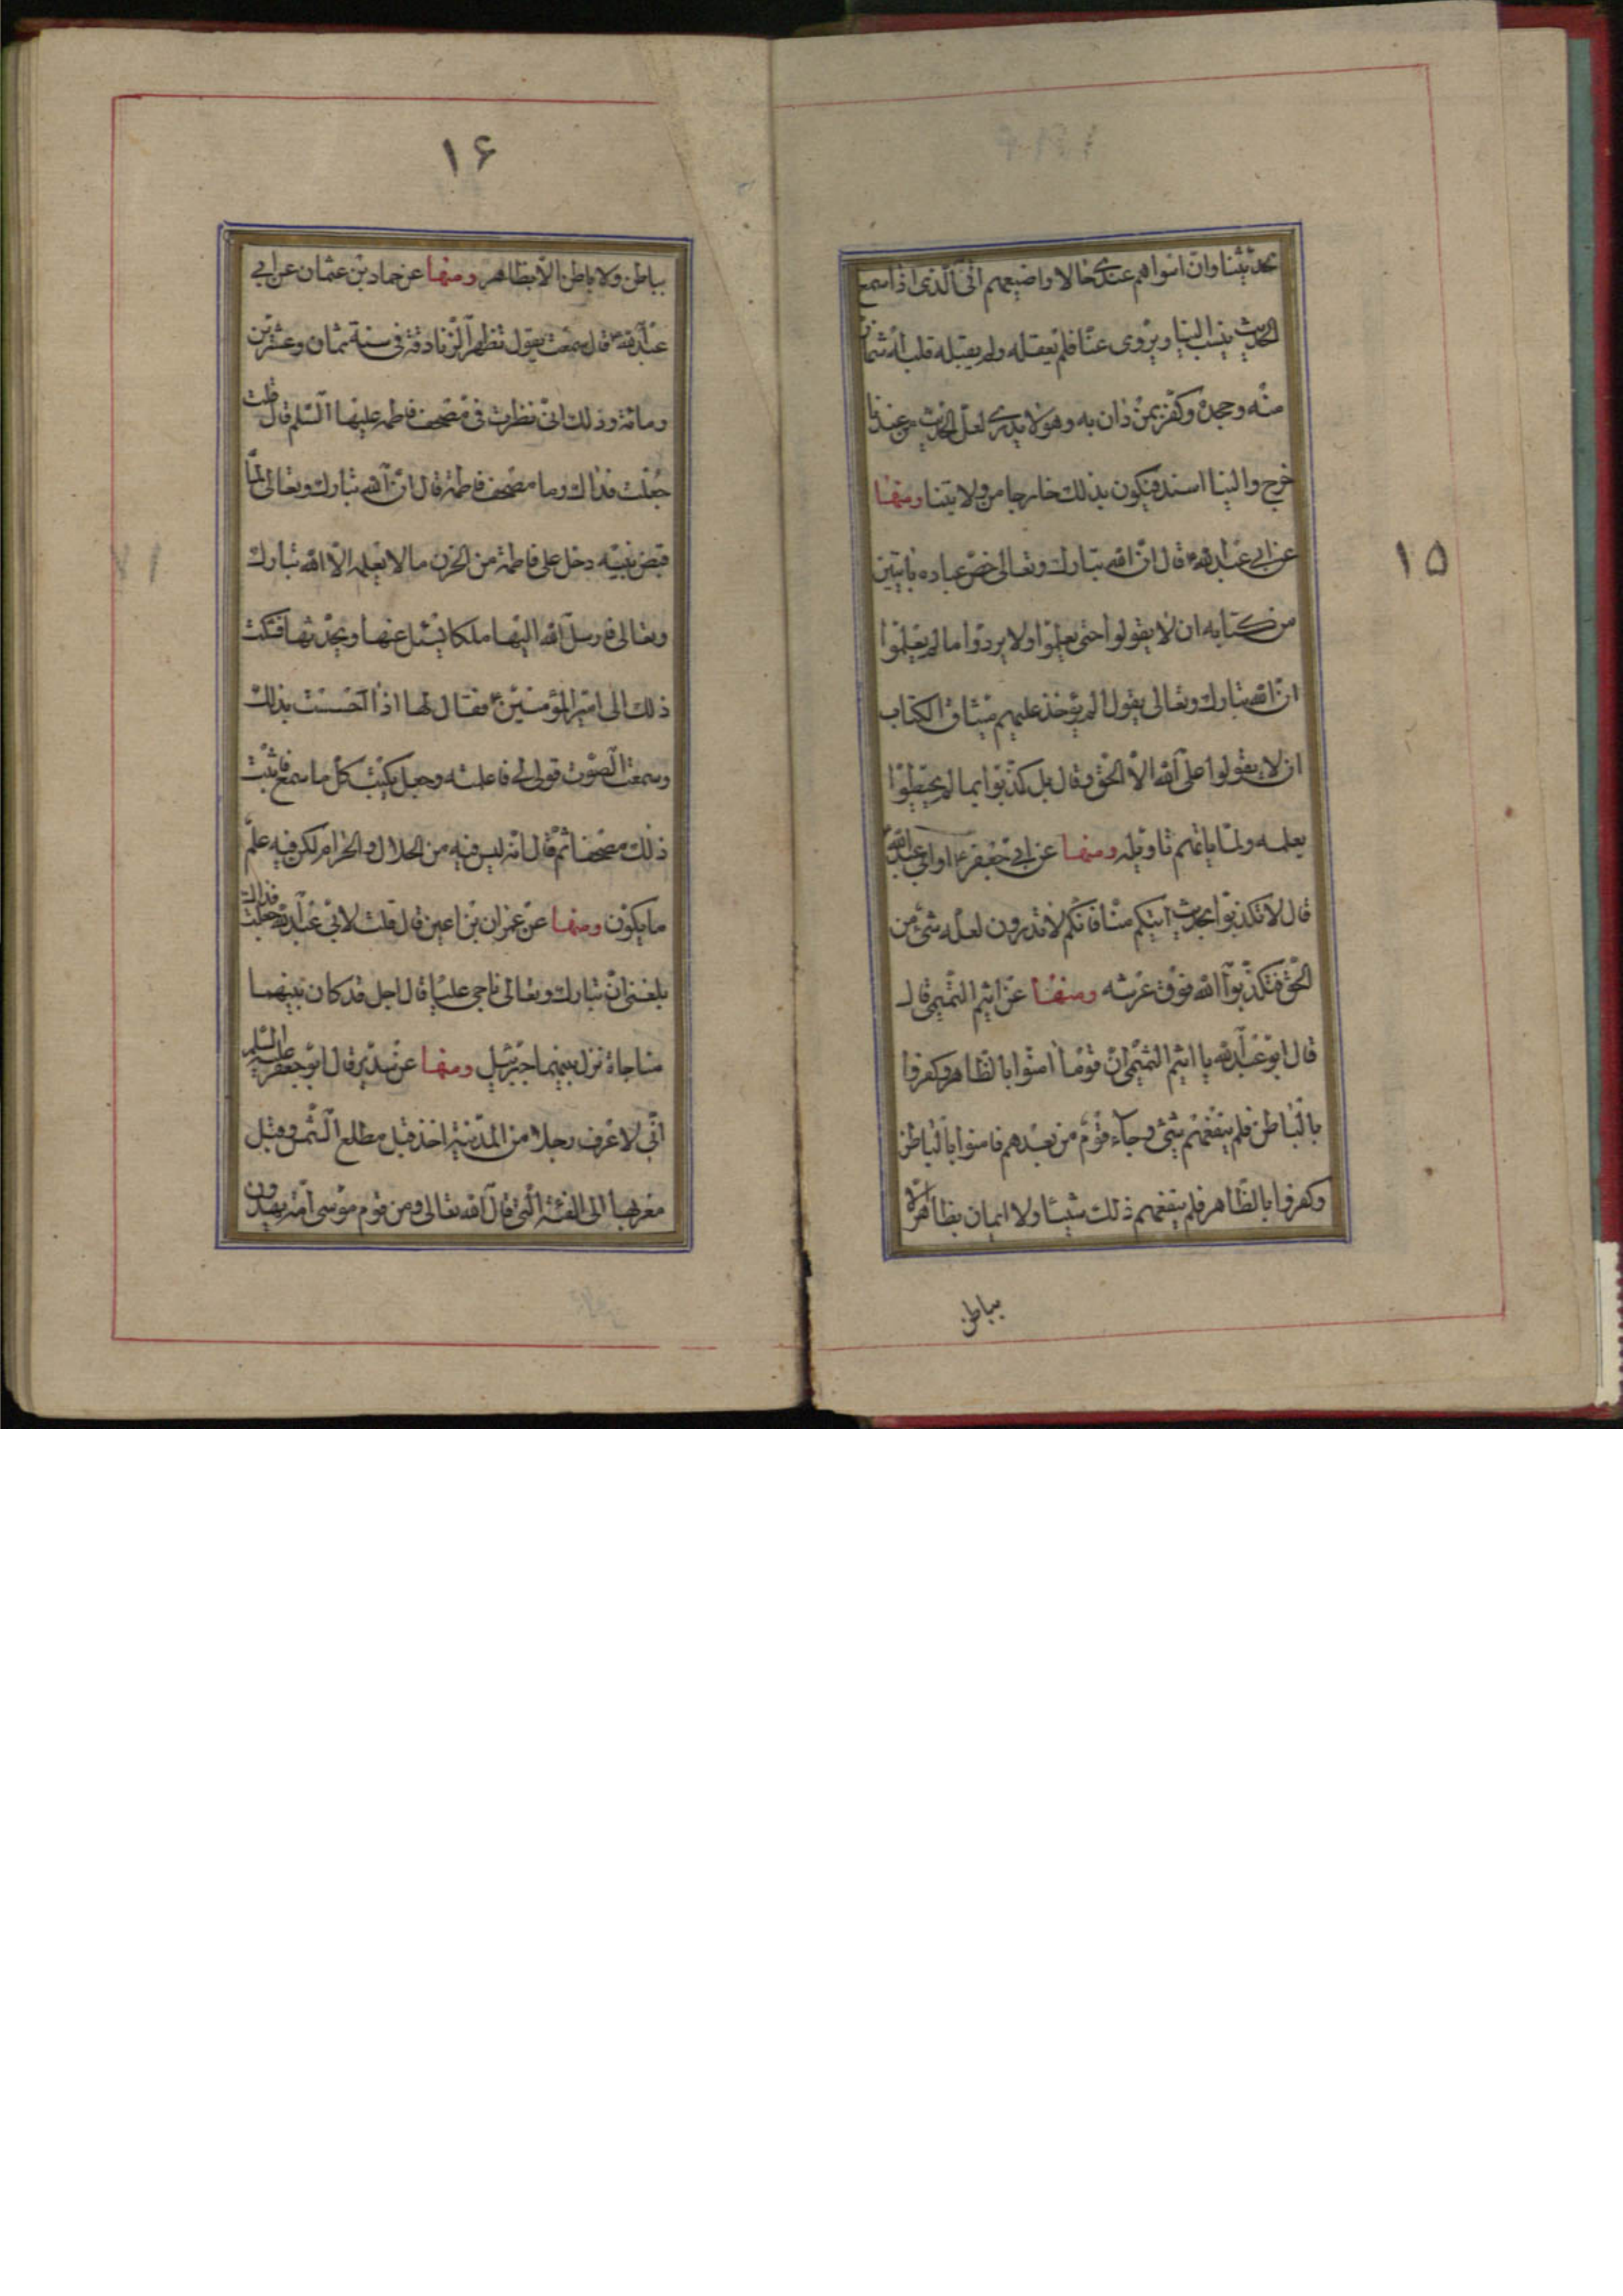 بحديثنا وان اسواهم عندي حالا واضيعهم انى الذى اذا سمع
الحديث ينسب الينا ويروى عنا فلم يعقله ولم يقبله قلبه اشماز
منه وجحده وكفر بمن دان به وهو لا يدرى لعل الحديث من عندنا
خرج والينا اسند فيكون بذلك خارجا من ولايتنا ومنها
عن ابى عبد الله ع قال ان الله تبارك وتعالى خص عباده بايتين
من كتابه ان لا يقولوا حتى يعلموا ولا يردوا ما لم يعلموا
ان الله تبارك وتعالى يقول الم يؤخذ عليهم ميثاق الكتاب
ان لا يقولوا على الله الا الحق وقال بل كذبوا بما لم يحيطوا
بعلمه ولما ياتهم تاويله ومنها عن ابى جعفر ع او ابى عبد الله
قال لا تكذبوا بحديث اتيكم منا فانكم لا تدرون لعله شىء من
الحق فتكذبوا الله فوق عرشه ومنها عن اثيم التميمى قال
قال ابو عبد الله يا اثيم التميمى ان قوما امنوا بالظاهر وكفروا
بالباطن فلم ينفعهم شىء وجاء قوم من بعدهم فامنوا بالباطن
وكفروا بالظاهر فلم ينفعهم ذلك شيئا ولا ايمان بظاهر الا
بباطن
١٥
١۶
بباطن ولا باطن الا بظاهر ومنها عن حماد بن عثمان عن ابى
عبد الله ع قال سمعت يقول تظهر الزنادقة فى سنة ثمان وعشرين
ومائة وذلك انى نظرت فى مصحف فاطمه عليها السلم قال قلت
جعلت فداك وما مصحف فاطمة قال ان الله تبارك وتعالى لما
قبض نبيه دخل على فاطمة من الحزن ما لا يعلمه الا الله تبارك
وتعالى فارسل الله اليها ملكا يسئل عنها ويحدثها فشكت
ذلك الى امير المؤمنين ع فقال لها اذا احسست بذلك
وسمعت الصوت قولى لى فاعلمته وجعل يكتب كل ما سمع فاثبت
ذلك مصحفا ثم قال انه ليس فيه من الحلال والحرام لكن فيه علم
ما يكون ومنها عن عمران بن اعين قال قلت لابى عبد الله جعلت فداك
بلغنى ان تبارك وتعالى ناجى عليا قال اجل قد كان بينهما
مناجاة نزل بينهما جبرئيل ومنها عن سدير قال ابو جعفر عليه السلم
انى لاعرف رجلا من المدينة اخذ قبل مطلع الشمس وقبل
مغربها الى الفئة التى قال الله تعالى ومن قوم موسى امة يهدون